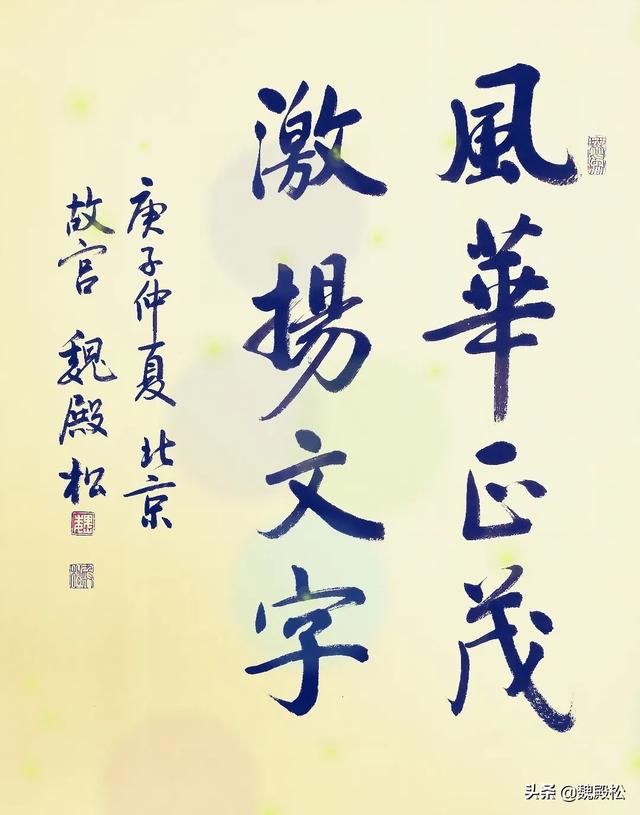 風華正茂
激揚文字
庚子仲夏 北京
故宫 魏殿松
头条 @魏殿松